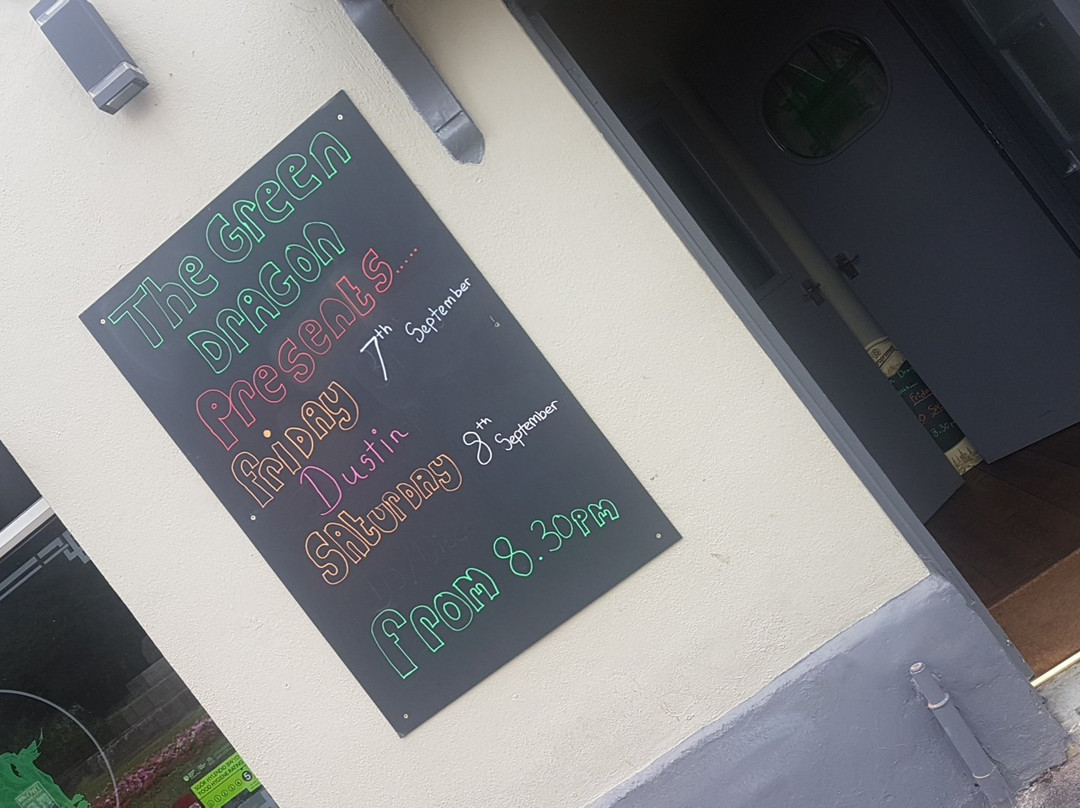 The Green
DRAGON
Presents.....
FRIDAY 7th September
Dustin
SAturDAY 8th September
From 8.30pm
FOOD HYGIENE RATING
5